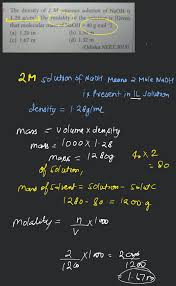 The density of 2 M aqueous solution of NaOH is
1.28 g/cm³. The molality of the solution is [Given
that molecular mass of NaOH = 40 g mol⁻¹]
(a) 1.20 m (b) 1.56 m
(c) 1.67 m (d) 1.32 m
(Odisha NEET 2019)
2M solution of NaOH Means 2 Mole NaOH
is Present in 1L solution
Density = 1.28g/ml
mass = volume x density
mass = 1000 X 1.28
mass = 1280g
of solution,
40 x 2
= 80
mass of solvent = solution - solute
1280 - 80 = 1200 g
Molality = n/V x 1000
2/1200 x 1000 = 2000/1200
= 1.67m